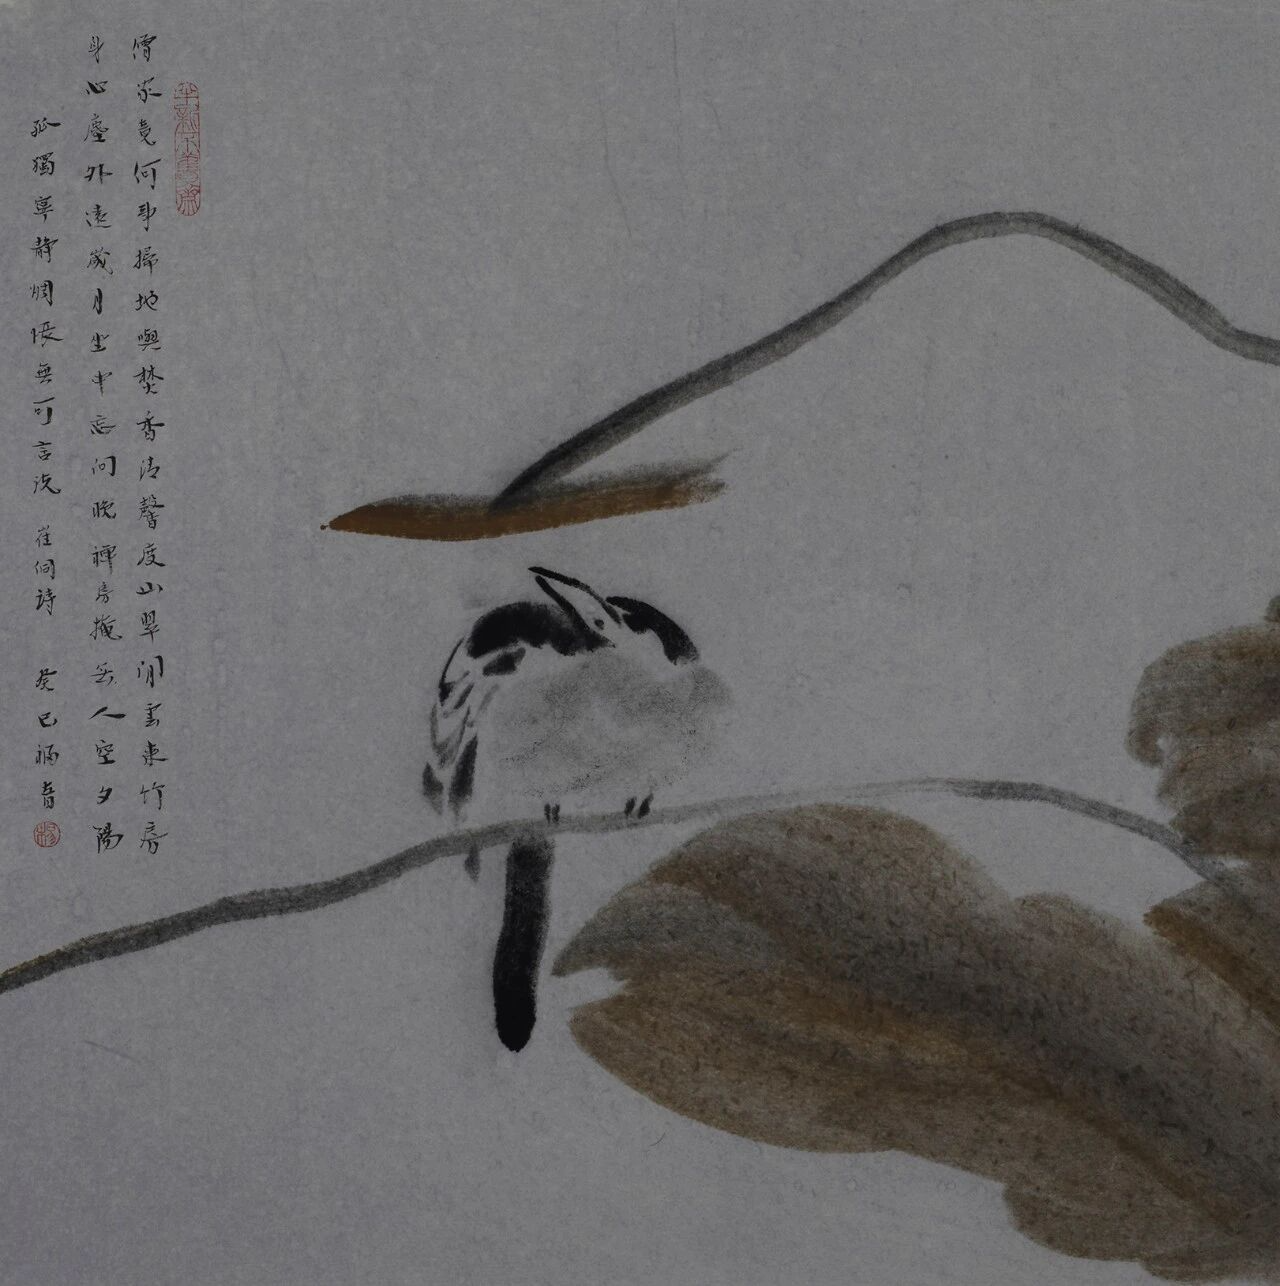 僧家竟何事掃地與焚香清磬度山翠閒雲來竹房
身心塵外遠歲月坐中忘向晚禪房掩無人空夕陽
孤獨寧靜惆悵無可言說 崔峒詩 癸巳福音